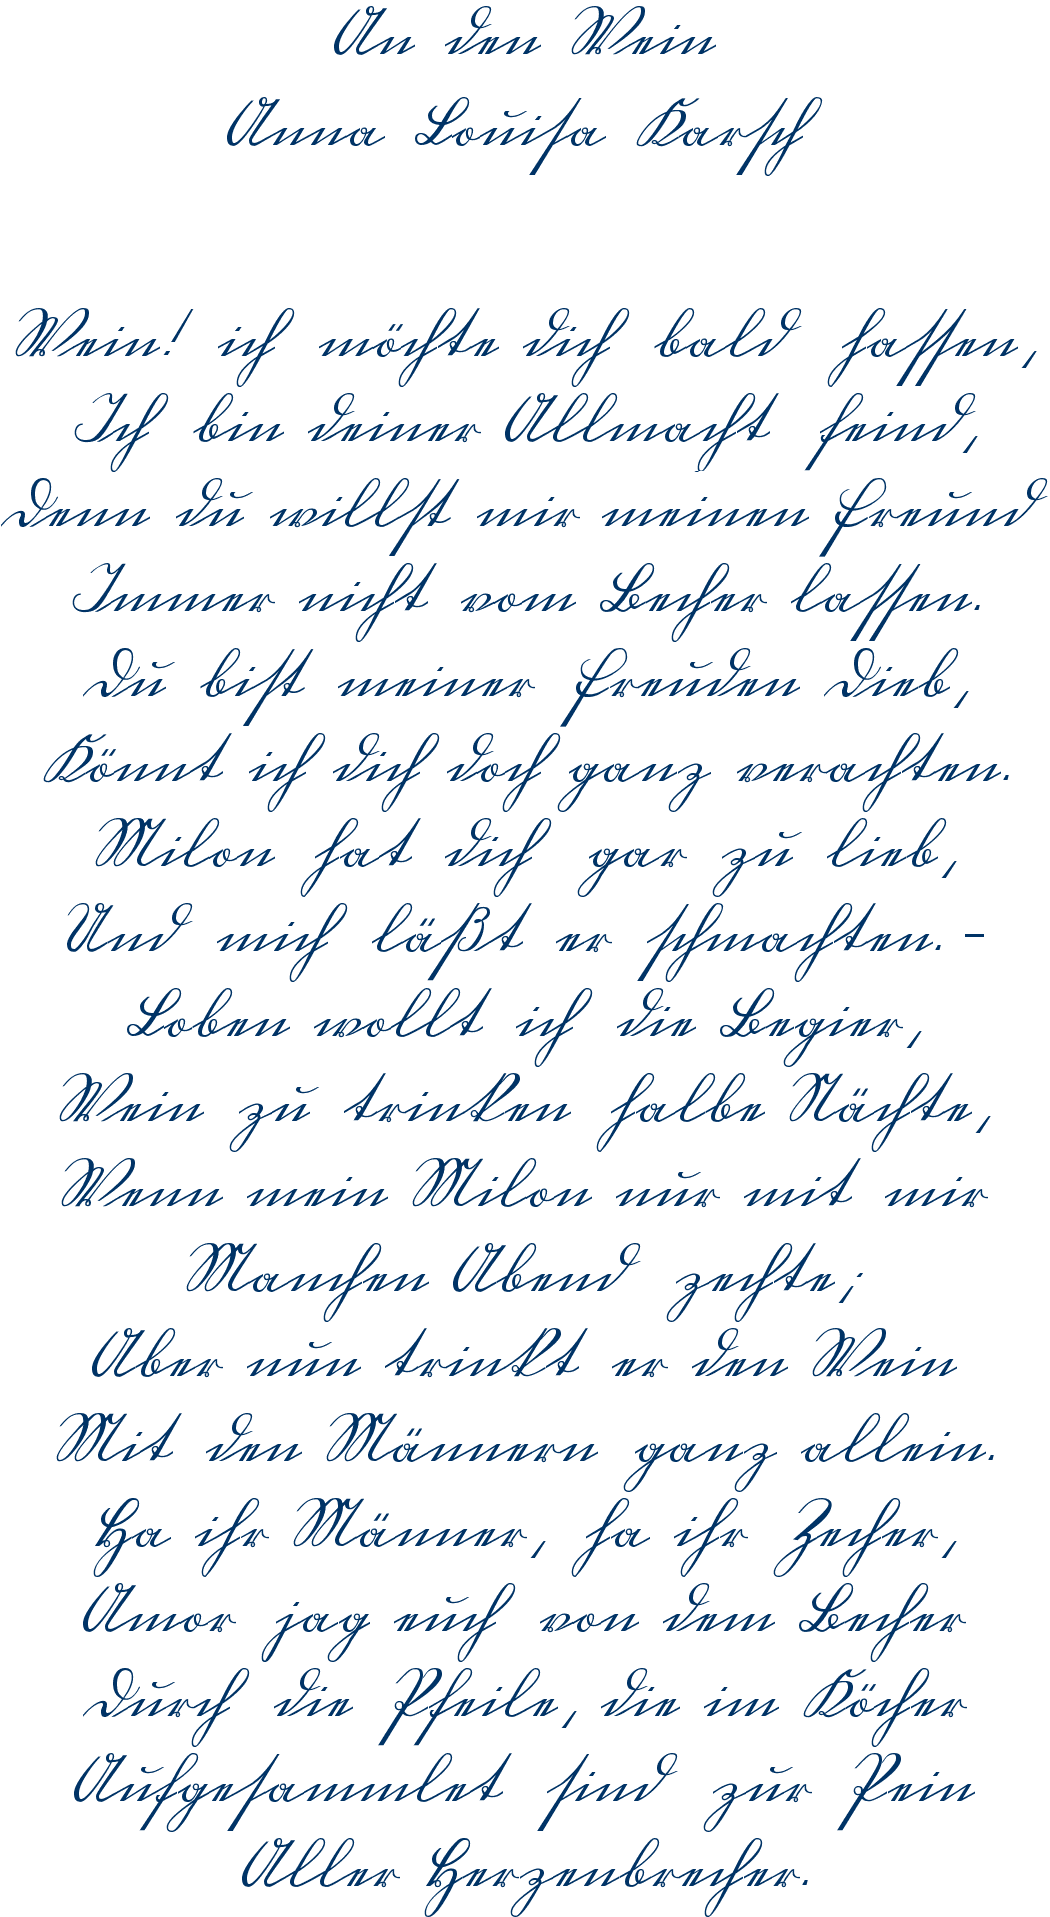 An den Wein
Anna Louisa Karsch
Wein! ich möchte dich bald hassen,
Ich bin deiner Allmacht feind,
Denn du willst mir meinen Freund
Immer nicht vom Becher lassen.
Du bist meiner Freuden Dieb,
Könnt ich dich doch ganz verachten.
Milon hat dich gar zu lieb,
Und mich läßt er schmachten. -
Loben wollt ich die Begier,
Wein zu trinken halbe Nächte,
Wenn mein Milon nur mit mir
Manchen Abend zechte;
Aber nun trinkt er den Wein
Mit den Männern ganz allein.
Ha ihr Männer, ha ihr Zecher,
Amor jag euch von dem Becher
Durch die Pfeile, die im Köcher
Aufgesammlet sind zur Pein
Aller Herzenbrecher.